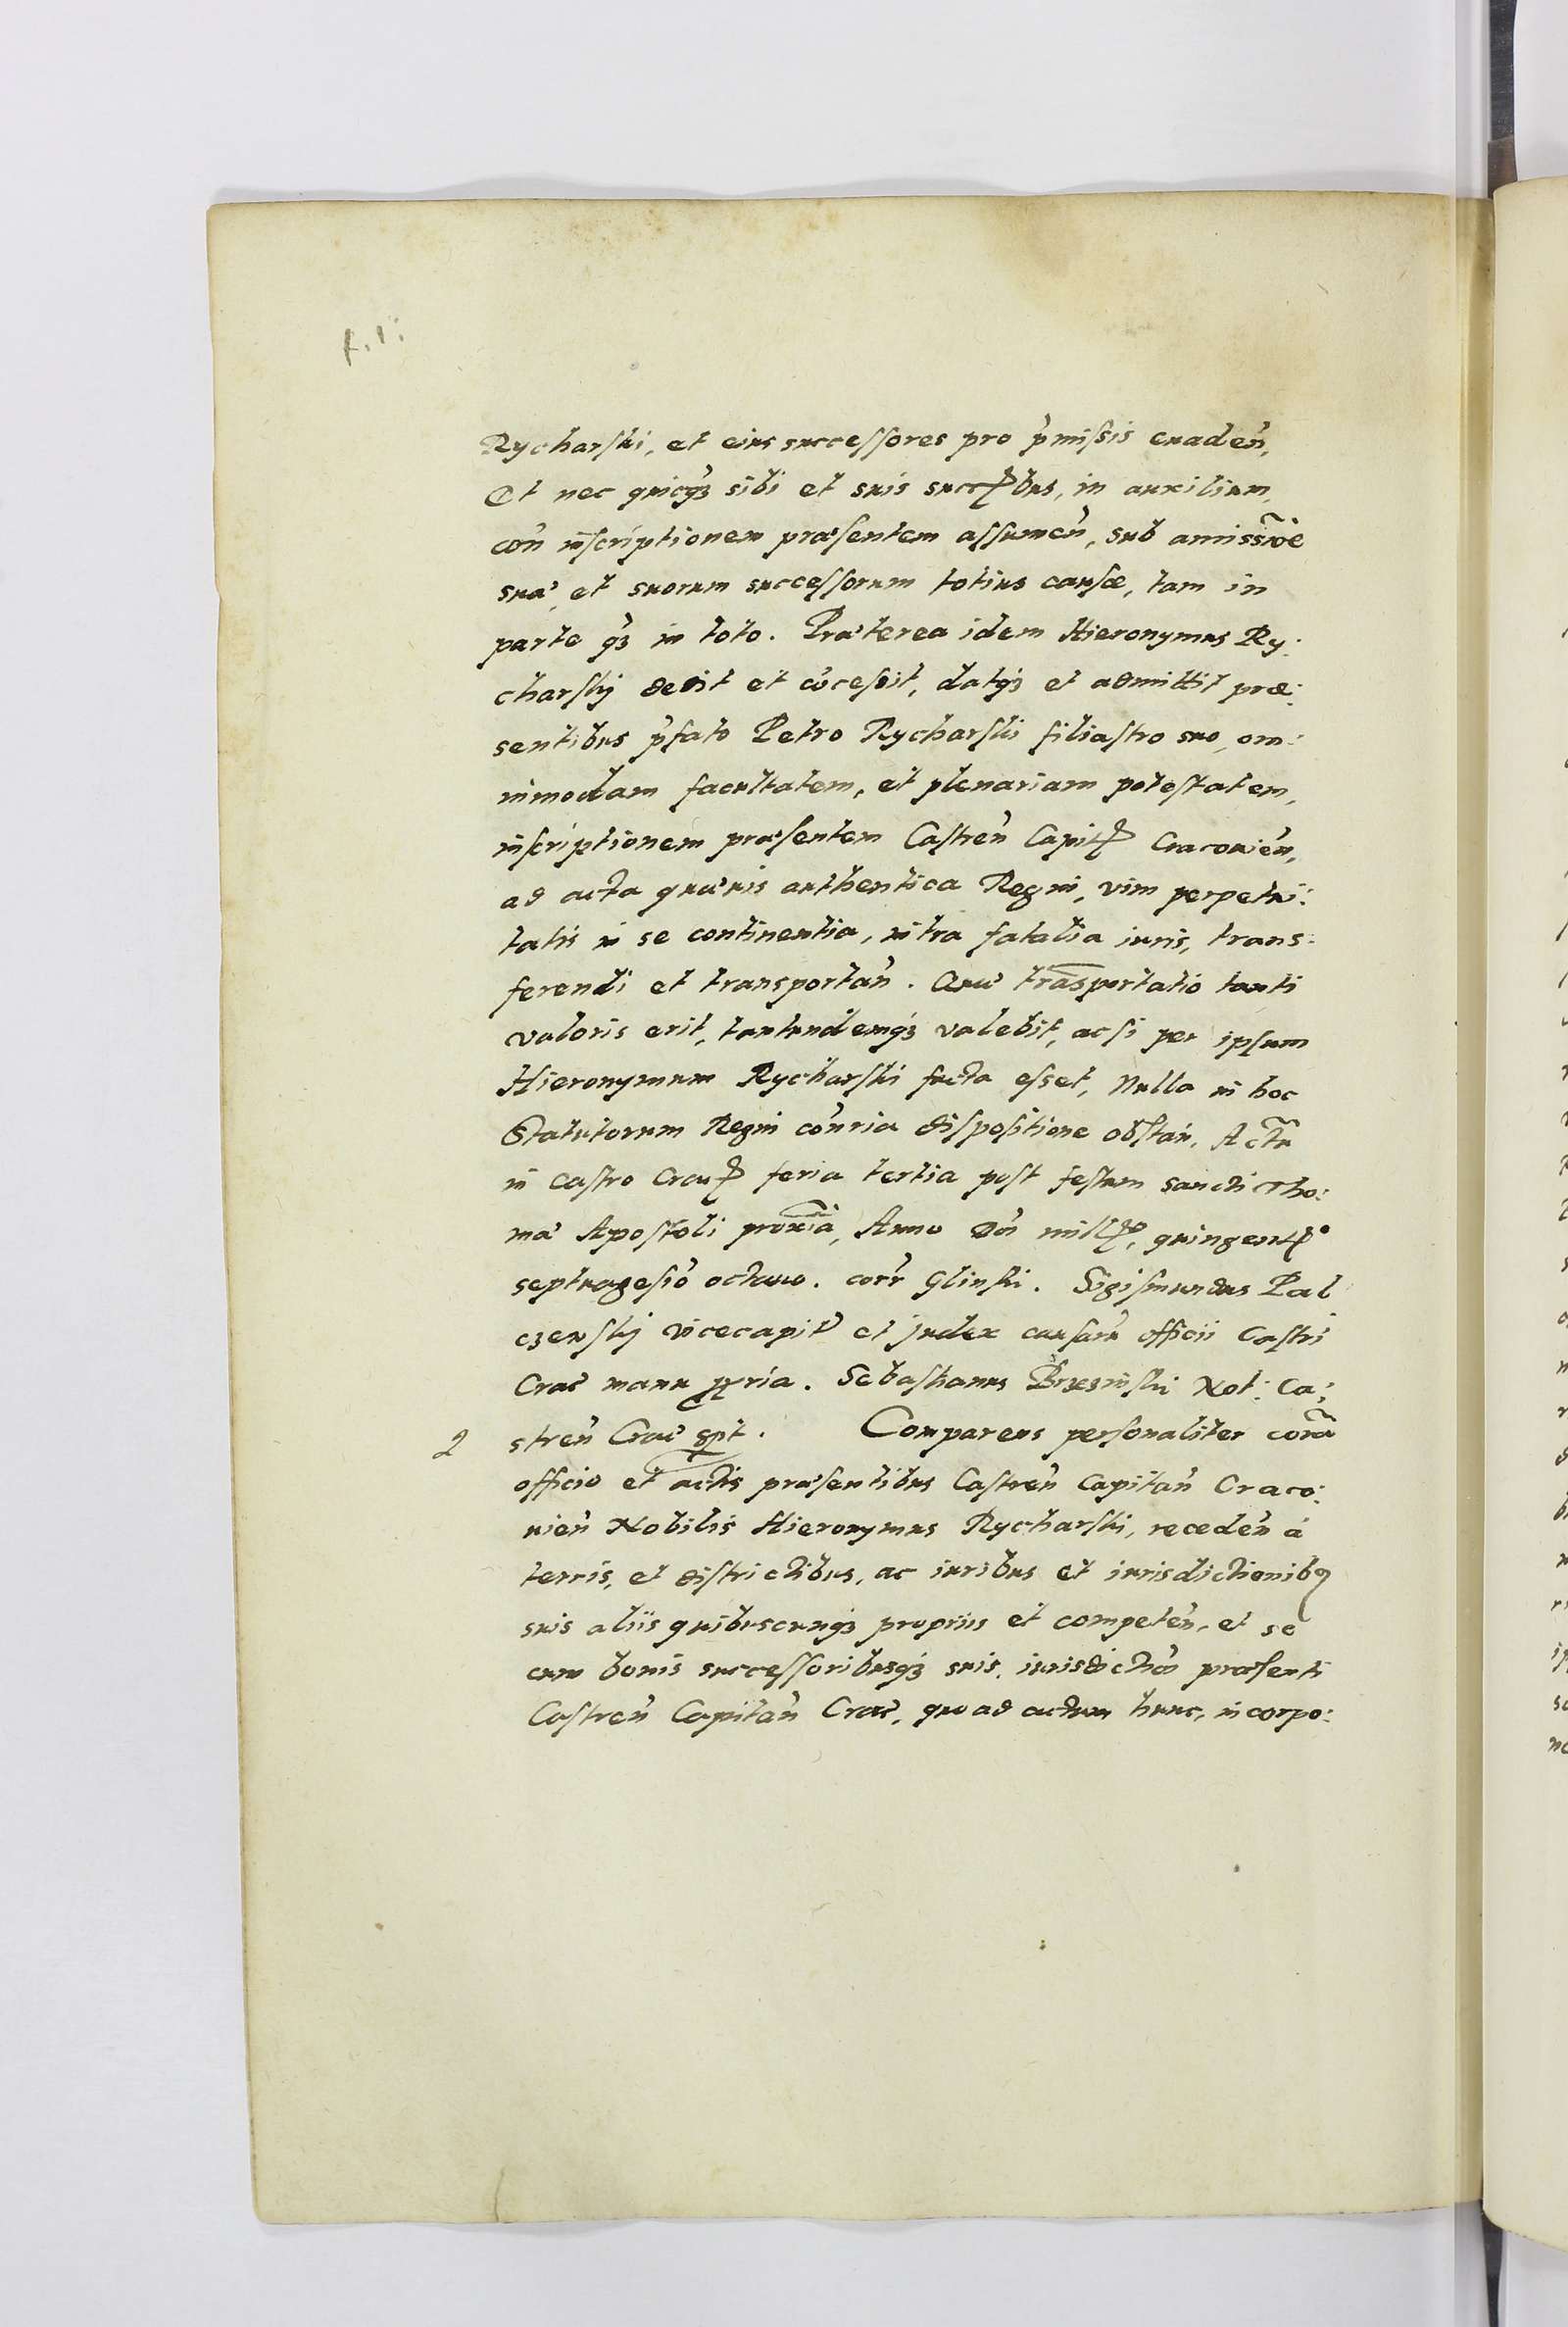 f. 1.
Rycharski, et eius successores pro p̃missis euadeñ,
Et nec quicqʒ sibi et suis succꝭbus, in auxilium,
coñ inscriptionem præsentem assumeñ, sub amissiõe
suæ, et suorum successorum totius causæ, tam in
parte qʒ in toto. Præterea idem Hieronymus Ry:
charskij dedit et cõcessit, datqʒ et admittit præ:
sentibus p̃fato Petro Rycharski filiastro suo, om:
nimodam facultatem, et plenariam potestatem,
inscriptionem præsentem Castreñ Capitꝭ Cracouieñ,
ad acta quæuis authentica Regni, vim perpetui:
tatis in se continentia, intra fatalia iuris, trans:
ferendi et transportañ. Quæ trãsportatio tanti
valoris erit, tantundemqʒ valebit, ac si per ipsum
Hieronymum Rycharski facta esset, Nulla in hoc
Statutorum Regni coñria dispositione obstañ. Actũ
in castro Cracꝭ feria tertia post festum sancti Tho:
mæ Apostoli proximã, Anno Doñ millꝭo, quingentꝭo
septuagesiõ octauo. corr̃ Glinski. Sigismundus Pal
czewskij vicecapit̃ et judex causarũ officii Castri
Crac̃ manu ꝓpria. Sebastianus Brzezinski Not: Ca:
2 streñ Crac̃ sspt. Comparens personaliter corã
officio et actis præsentibus Castreñ Capitañ Craco:
uieñ Nobilis Hieronymus Rycharski, recedeñ à
terris, et districtibus, ac iuribus et iurisdictionibꝰ
suis aliis quibuscunqʒ propriis et competeñ, et se
cum bonis successoribusqʒ suis, iurisdictioñ præsenti
Castreñ Capitañ Crac̃, quo ad actum hunc, incorpo: